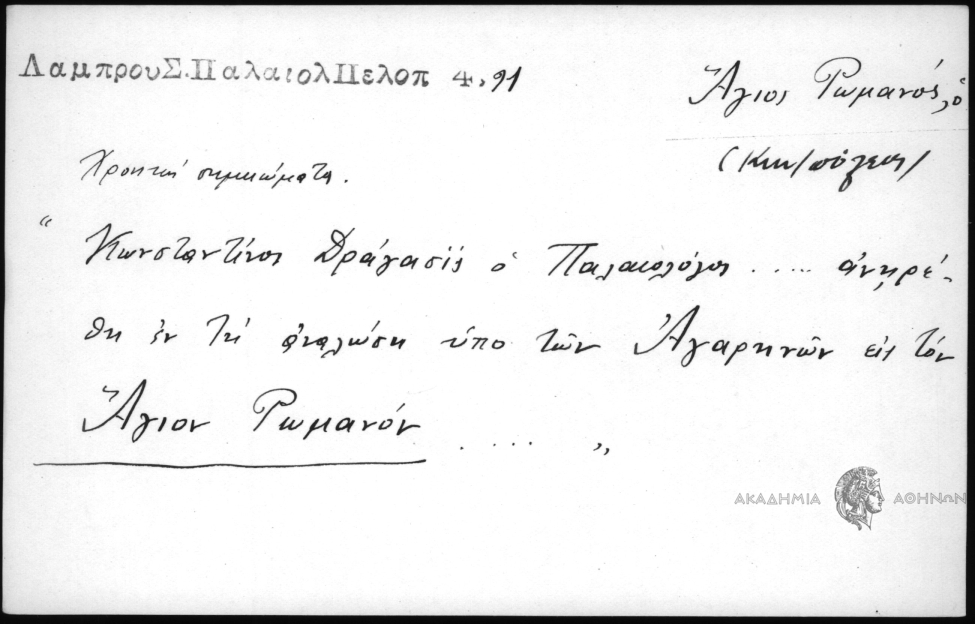 ΛαμπρουΣ.ΠαλαιολΠελοπ 4,91
Ἅγιος Ρωμανός, ὁ
(Κων/πόλεως)
σημειώματα.
“ Κωνσταντῖνος Δράγασϊς ὁ Παλαιολόγος ..... ἀνῃρέ-
θη ἐν τῇ ἁλώσῃ ὑπο τῶν Ἀγαρηνῶν εἰς τόν
Ἅγιον Ρωμανόν ..... „
ΑΚΑΔΗΜΙΑ ΑΘΗΝΩΝ